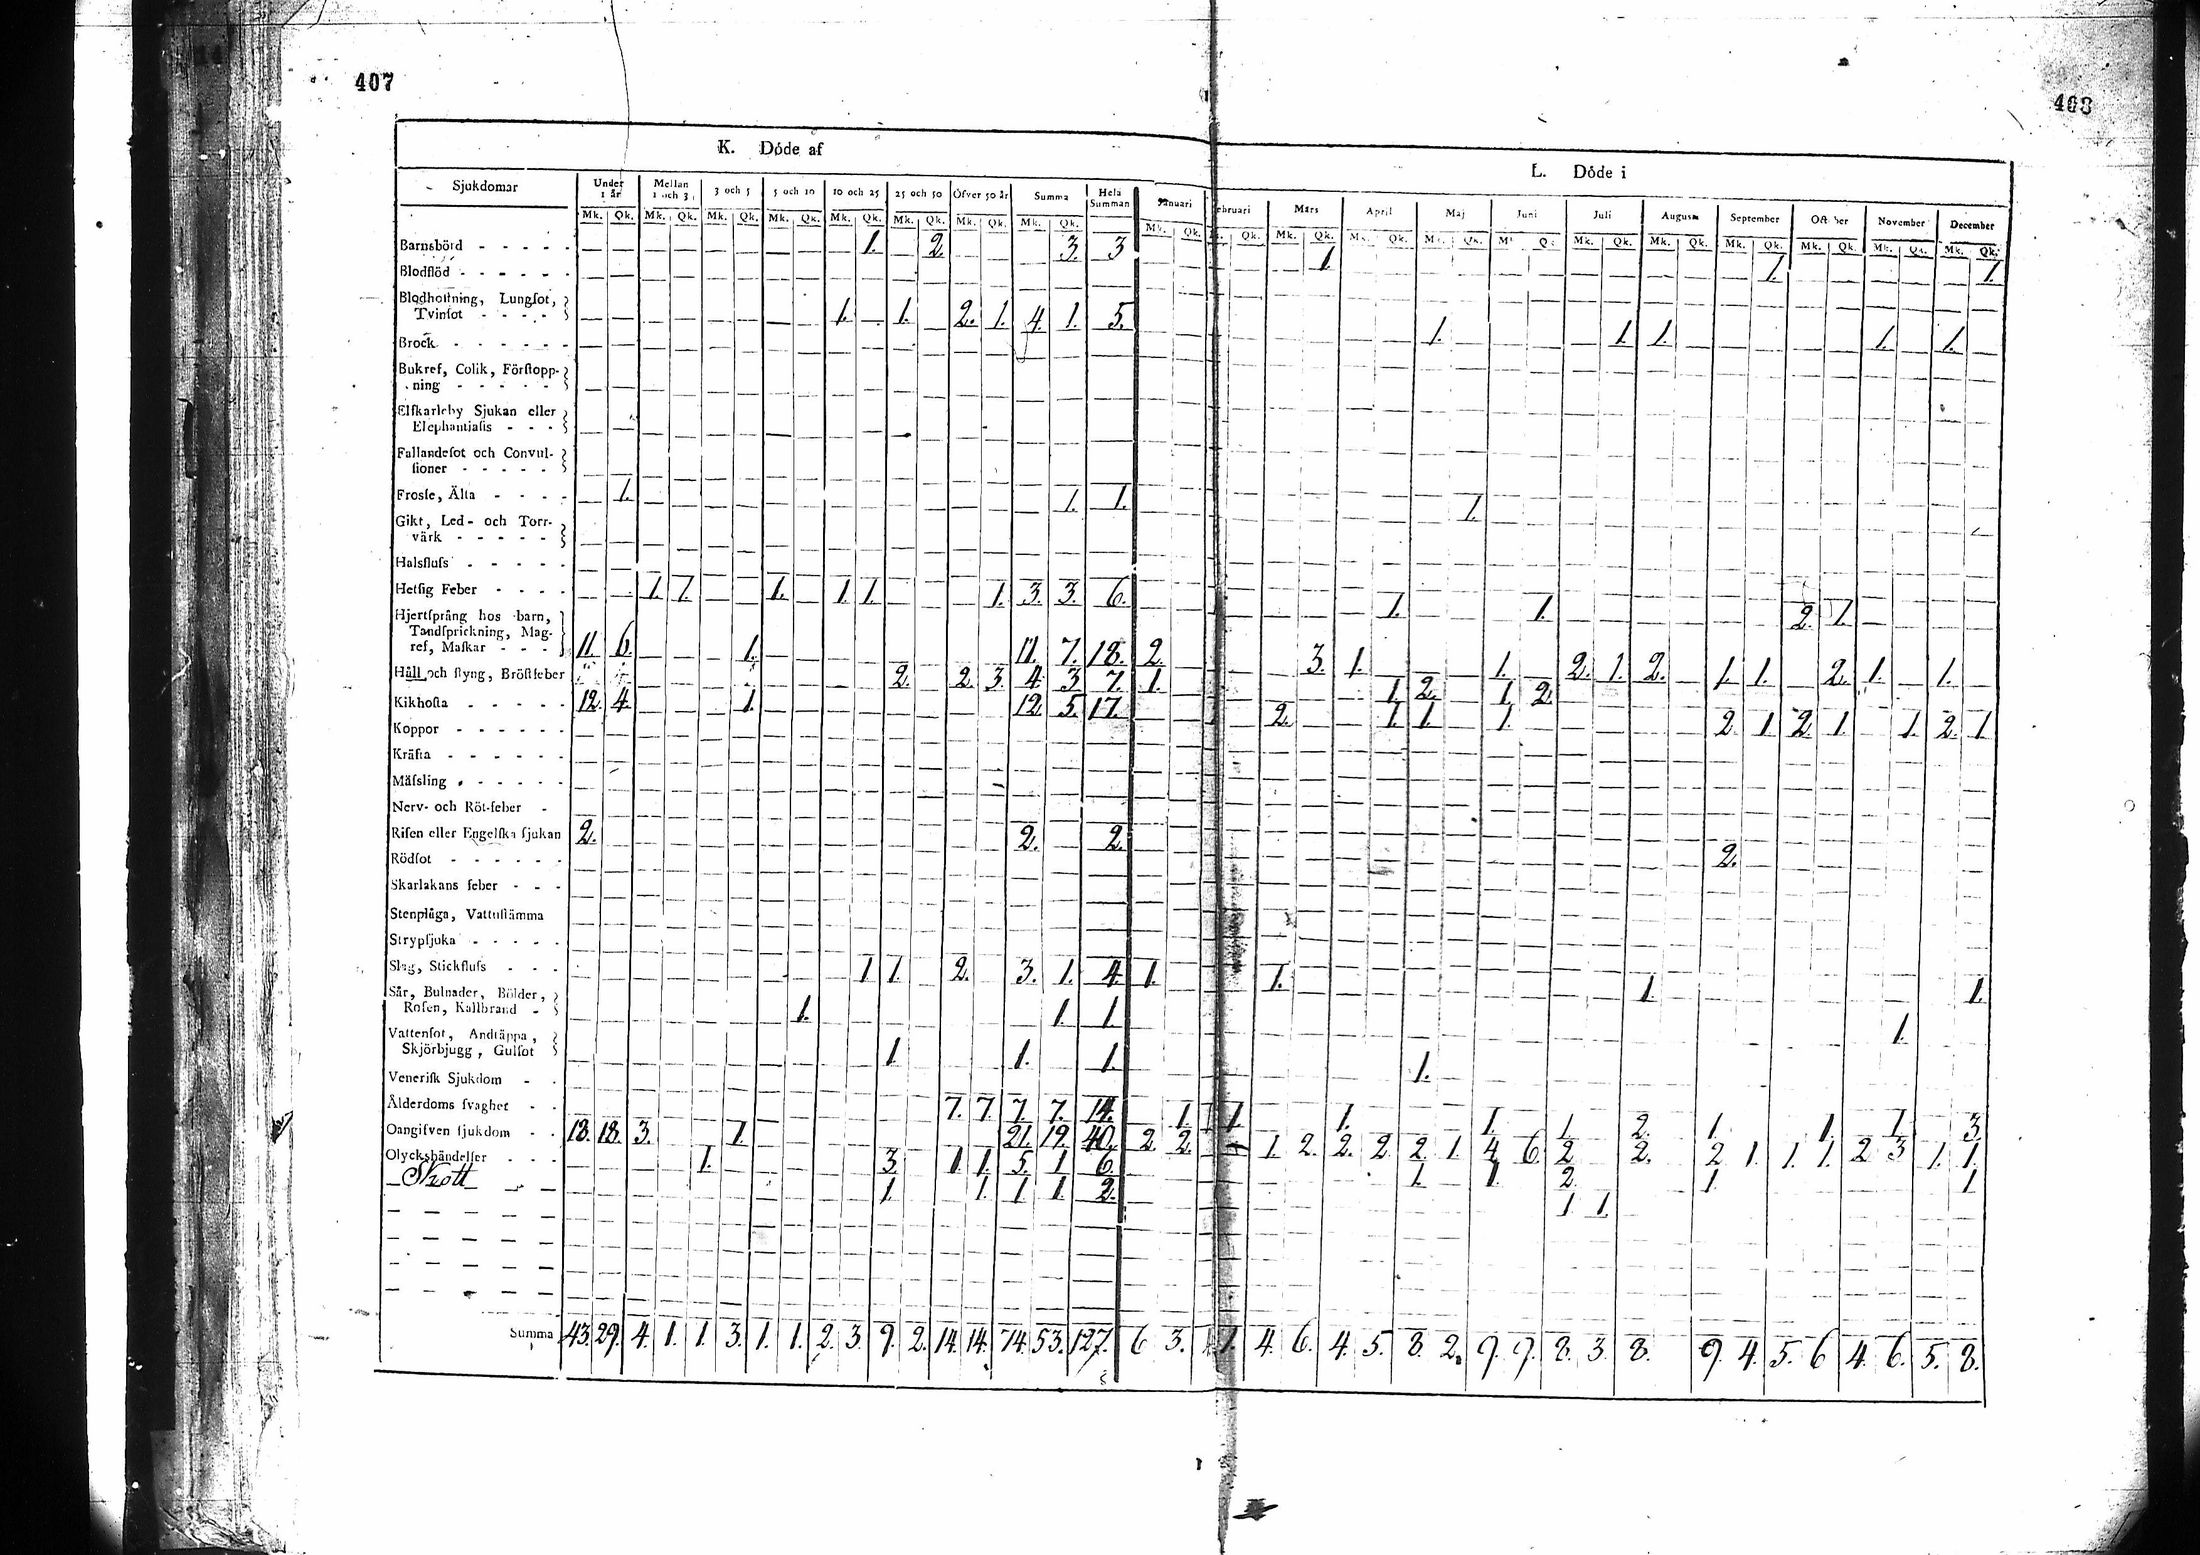 407
408
K. Döde af
L. Döde i
Sjukdomar | Under 1 år | Mellan 1 och 3 | 3 och 5 | 5 och 10 | 10 och 25 | 25 och 50 | Öfver 50 år | Summa | Hela Summan | Januari | Februari | Mårs | April | Maj | Juni | Juli | Augusti | September | October | November | December
Mk. Qk. Mk. Qk. Mk. Qk. Mk. Qk. Mk. Qk. Mk. Qk. Mk. Qk. Mk. Qk. Mk. Qk. Qk. Mk. Qk. Mk. Qk. Mk. Qk. Mk. Qk. Mk. Qk. Mk. Qk. Mk. Qk. Mk. Qk. Mk. Qk. Mk. Qk.
Barnsbörd - - - - - 1. 2. 3. 3 1. 1. 1.
Blodflöd - - - - - -
Blodhostning, Lungsot,
Tvinsot - - - - 1. 1. 2. 1. 4. 1. 5. 1. 1. 1. 1. 1.
Brock - - - - - -
Bukref, Colik, Förstopp-
ning - - - - -
Elfkarleby Sjukan eller
Elephantiasis - - -
Fallandesot och Convul-
sioner - - - - -
Frosse, Älta - - - - 1. 1. 1. 1.
Gikt, Led- och Torr-
värk - - - - -
Halsfluss - - - - -
Hetsig Feber - - - - 1. 1. 1. 1. 1. 1. 3. 3. 6. 1. 1. 2. 1.
Hjertsprång hos barn,
Tandsprickning, Mag-
ref, Maskar - - - 11. 6. 1. 11. 7. 18. 2. 3. 1. 1. 2. 1. 2. 1. 1. 2. 1. 1.
Håll och styng, Bröstfeber 2. 2. 3. 4. 3 7. 1. 1. 2. 1. 2.
Kikhosta - - - - - 12. 4. 1. 12. 5. 17. 2. 1. 1. 1. 2. 1 2. 1. 1. 2. 1
Koppor - - - - - -
Kräfta - - - - - -
Mässling - - - - - -
Nerv- och Röt-feber -
Risen eller Engelska sjukan 2. 2. 2. 2.
Rödsot - - - - - -
Skarlakans feber - - -
Stenplåga, Vattustämma
Strypsjuka - - - - -
Slag, Stickfluss - - - 1 1. 2. 3. 1. 4. 1. 1. 1. 1.
Sår, Bulnader, Bölder,
Rosen, Kallbrand - 1. 1. 1. 1.
Vattensot, Andtäppa,
Skjörbjugg, Gulsot 1. 1. 1. 1.
Venerisk Sjukdom - -
Ålderdoms svaghet - - 7. 7. 7. 7. 14. 1. 1. 1. 1. 1 2. 1 1. 1. 3.
Oangifven sjukdom - - 18. 18. 3. 1. 21. 19. 40. 2. 2. 1. 2. 2. 2. 2. 1. 4. 6. 2 2. 2 1. 1. 1. 2 3 1. 1.
Olyckshändelser - - - 1. 3. 1. 1. 5. 1 6. 1. 1. 2. 1. 1
Skott 1. 1. 1. 1. 2. 1 1.
Summa 43. 29. 4. 1. 1. 3. 1. 1. 2. 3. 9. 2. 14. 14. 74. 53. 127. 6 3. 1. 4. 6. 4. 5. 8. 2. 9. 9. 8. 3. 8. 9. 4. 5. 6 4. 6. 5. 8.